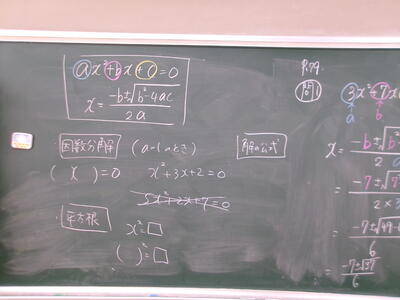 ax²+bx+c=0
x=(-b±√(b²-4ac))/2a
因数分解 (a=1のとき)
( )( )=0 x²+3x+2=0
5x²+2x+7=0
平方根
x²=□
( )²=□
P.79
問1 3x²+7x
a b
解の公式
x=
-b±√b
2a
=
-7±√7
2×3
=
-7±√49-
6
=
-7±√37
6